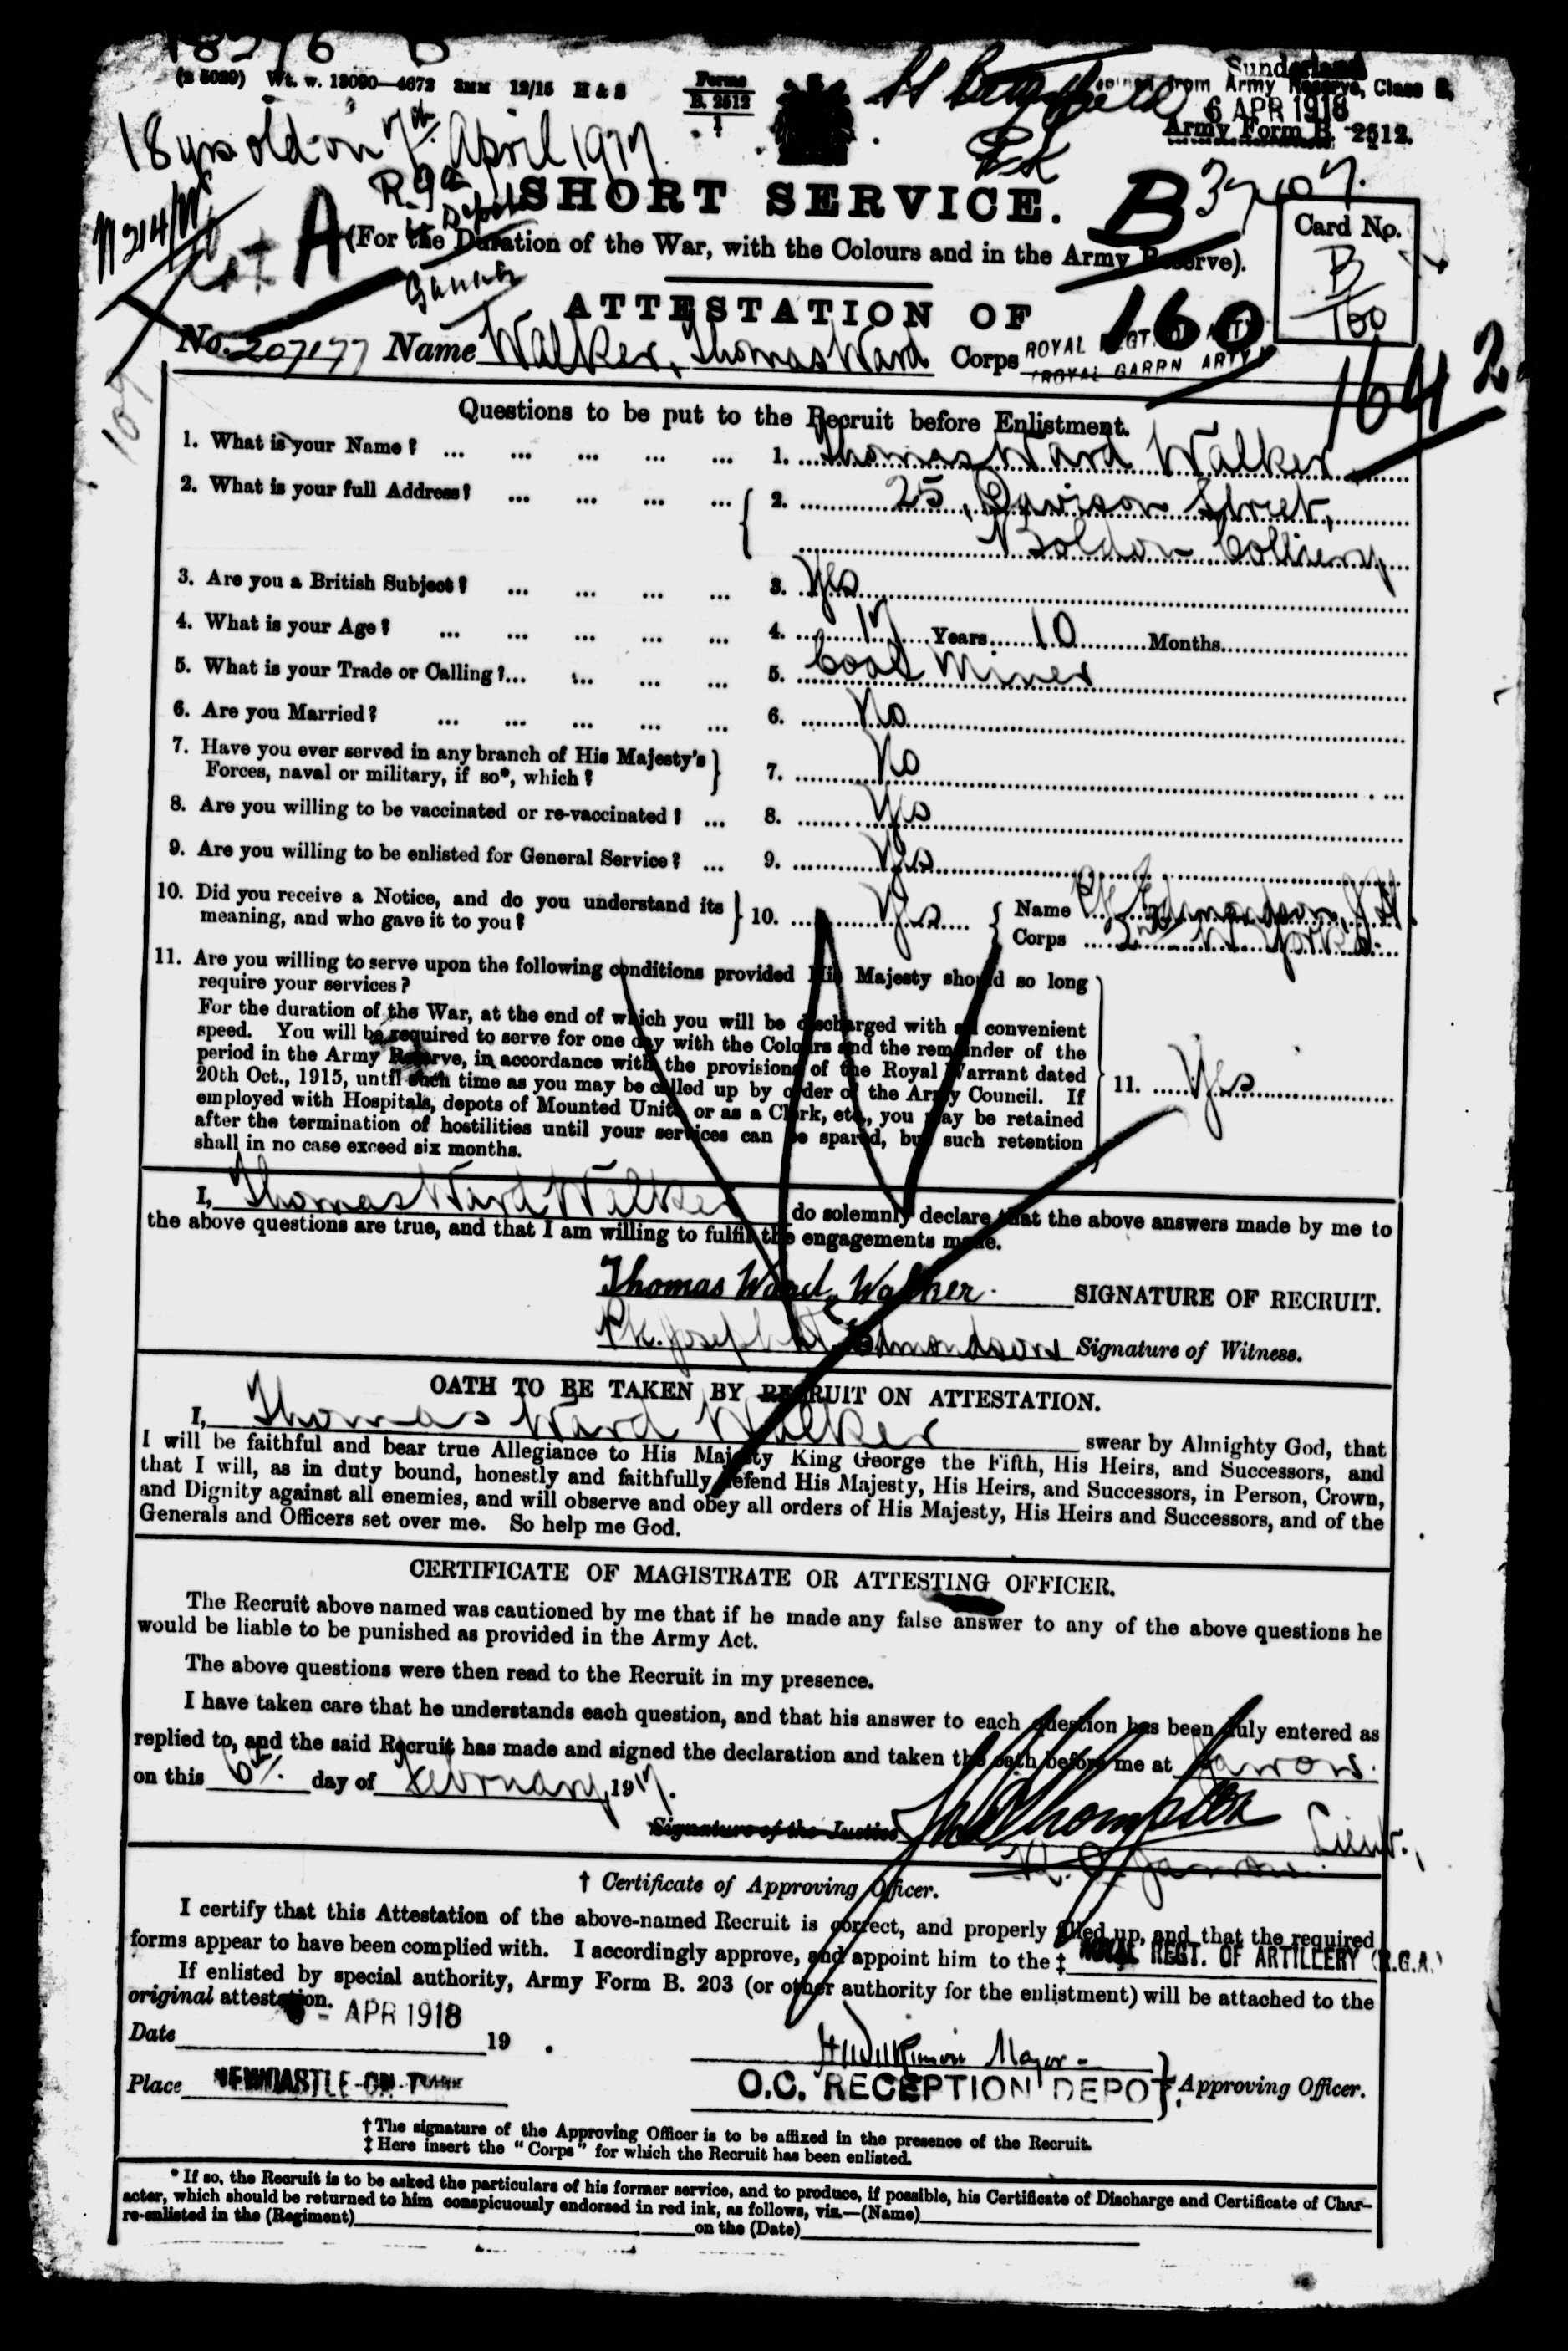 18576 B
(2 5029) Wt. w. 13090—4672 2MM 12/15 H & S
Forms
B. 2512
1
Sunderland
from Army Reserve, Class B,
6 APR 1918
Army Form B. 2512.
18 yrs old on 7th April 1917.
R.G.A.
Depot
SHORT SERVICE.
B
Card No.
B
160
A
(For the Duration of the War, with the Colours and in the Army Reserve).
Gunner
ATTESTATION OF
160
No. 207177 Name Walker, Thomas Ward Corps ROYAL REGT. OF ARTY
(ROYAL GARRN ARTY)
1642
107
Questions to be put to the Recruit before Enlistment.
1. What is your Name? ... ... ... ... ... 1. Thomas Ward Walker
2. What is your full Address? ... ... ... ... 2. 25, Davison Street,
Boldon Colliery
3. Are you a British Subject? ... ... ... ... 3. Yes
4. What is your Age? ... ... ... ... ... 4. 17 Years 10 Months
5. What is your Trade or Calling?... ... ... ... 5. Coal Miner
6. Are you Married? ... ... ... ... ... 6. No
7. Have you ever served in any branch of His Majesty's
Forces, naval or military, if so*, which? 7. No
8. Are you willing to be vaccinated or re-vaccinated? ... 8. Yes
9. Are you willing to be enlisted for General Service? ... 9. Yes
10. Did you receive a Notice, and do you understand its
meaning, and who gave it to you? 10. Yes Name Pte Edmondson, J.H.
Corps 2nd W. Yorks.
11. Are you willing to serve upon the following conditions provided His Majesty should so long
require your services?
For the duration of the War, at the end of which you will be discharged with all convenient
speed. You will be required to serve for one day with the Colours and the remainder of the
period in the Army Reserve, in accordance with the provisions of the Royal Warrant dated
20th Oct., 1915, until such time as you may be called up by order of the Army Council. If
employed with Hospitals, depots of Mounted Units, or as a Clerk, etc., you may be retained
after the termination of hostilities until your services can be spared, but such retention
shall in no case exceed six months.
11. Yes
I, Thomas Ward Walker do solemnly declare that the above answers made by me to
the above questions are true, and that I am willing to fulfil the engagements made.
Thomas Ward Walker. SIGNATURE OF RECRUIT.
Pte. Joseph H. Edmondson Signature of Witness.
OATH TO BE TAKEN BY RECRUIT ON ATTESTATION.
I, Thomas Ward Walker swear by Almighty God, that
I will be faithful and bear true Allegiance to His Majesty King George the Fifth, His Heirs, and Successors, and
that I will, as in duty bound, honestly and faithfully defend His Majesty, His Heirs, and Successors, in Person, Crown,
and Dignity against all enemies, and will observe and obey all orders of His Majesty, His Heirs and Successors, and of the
Generals and Officers set over me. So help me God.
CERTIFICATE OF MAGISTRATE OR ATTESTING OFFICER.
The Recruit above named was cautioned by me that if he made any false answer to any of the above questions he
would be liable to be punished as provided in the Army Act.
The above questions were then read to the Recruit in my presence.
I have taken care that he understands each question, and that his answer to each question has been duly entered as
replied to, and the said Recruit has made and signed the declaration and taken the oath before me at Jarrow.
on this 6th. day of February 1917.
Signature of the Justice Thompson Lieut.,
R.O. Jarrow.
† Certificate of Approving Officer.
I certify that this Attestation of the above-named Recruit is correct, and properly filled up, and that the required
forms appear to have been complied with. I accordingly approve, and appoint him to the ‡ ROYAL REGT. OF ARTILLERY (R.G.A.)
If enlisted by special authority, Army Form B. 203 (or other authority for the enlistment) will be attached to the
original attestation.
Date 6 - APR 1918 19 .
Major
Place NEWCASTLE-ON-TYNE O.C. RECEPTION DEPOT. Approving Officer.
† The signature of the Approving Officer is to be affixed in the presence of the Recruit.
‡ Here insert the "Corps" for which the Recruit has been enlisted.
* If so, the Recruit is to be asked the particulars of his former service, and to produce, if possible, his Certificate of Discharge and Certificate of Char-
acter, which should be returned to him conspicuously endorsed in red ink, as follows, viz.—(Name)
re-enlisted in the (Regiment) on the (Date)